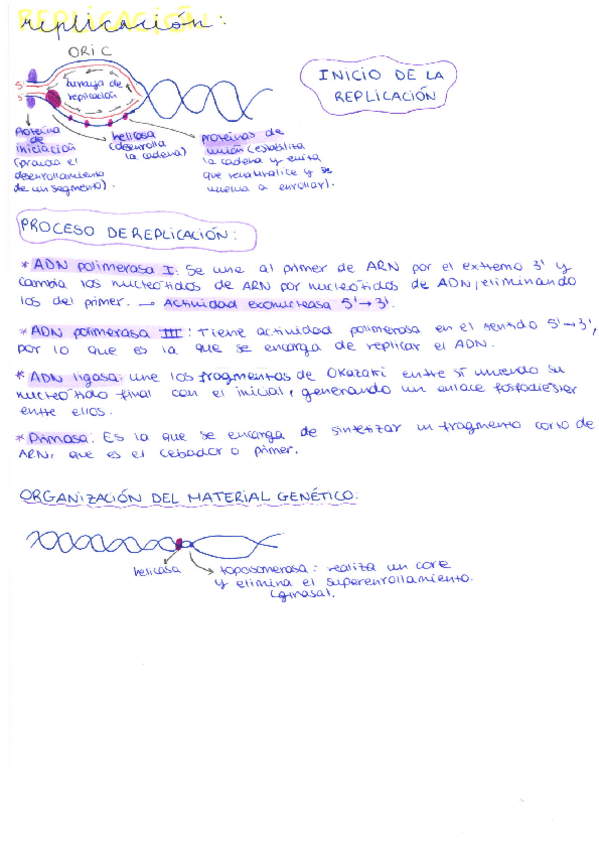 REPLICACIÓN
replicación:
ORI C
INICIO DE LA
REPLICACIÓN
5'
5'
burbuja de
replicación
Proteína
de
iniciación
(provoca el
desenrollamiento
de un segmento).
helicasa
(desenrolla
la cadena)
proteínas de
unión (estabiliza
la cadena y evita
que renaturalice y se
vuelva a enrollar).
PROCESO DE REPLICACIÓN:
* ADN polimerasa I: Se une al primer de ARN por el extremo 3' y
cambia los nucleótidos de ARN por nucleótidos de ADN, eliminando
los del primer. → Actividad exonucleasa 5'→3'.
* ADN polimerasa III: Tiene actividad polimerasa en el sentido 5'→3',
por lo que es la que se encarga de replicar el ADN.
* ADN ligasa: une los fragmentos de Okazaki entre sí uniendo su
nucleótido final con el inicial, generando un enlace fosfodiéster
entre ellos.
* Primasa: Es la que se encarga de sintetizar un fragmento corto de
ARN, que es el cebador o primer.
ORGANIZACIÓN DEL MATERIAL GENÉTICO:
helicasa
topoisomerasa: realiza un corte
y elimina el superenrollamiento.
(girasa).